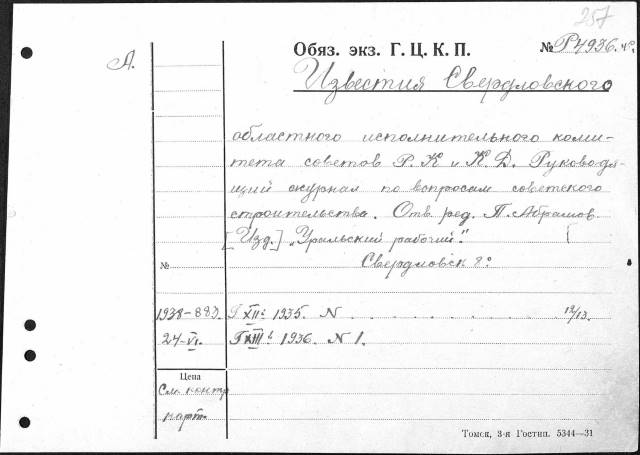 257
Обяз. экз. Г. Ц. К. П. № Р4936.
А.
Известия Свердловского
областного исполнительного коми-
тета советов Р. К и К. Д. Руководя-
щий журнал по вопросам советского
строительства. Отв. ред. П. Абрамов.
[Изд.] „Уральский рабочий". [
№ Свердловск 8°
1938-883. Г XIIй 1935. N . . . . . . . . . . 12/13.
24-VI. Г XIIIй 1936. N 1.
Цена
См. контр
карт.
Томск, 3-я Гостип. 5344—31